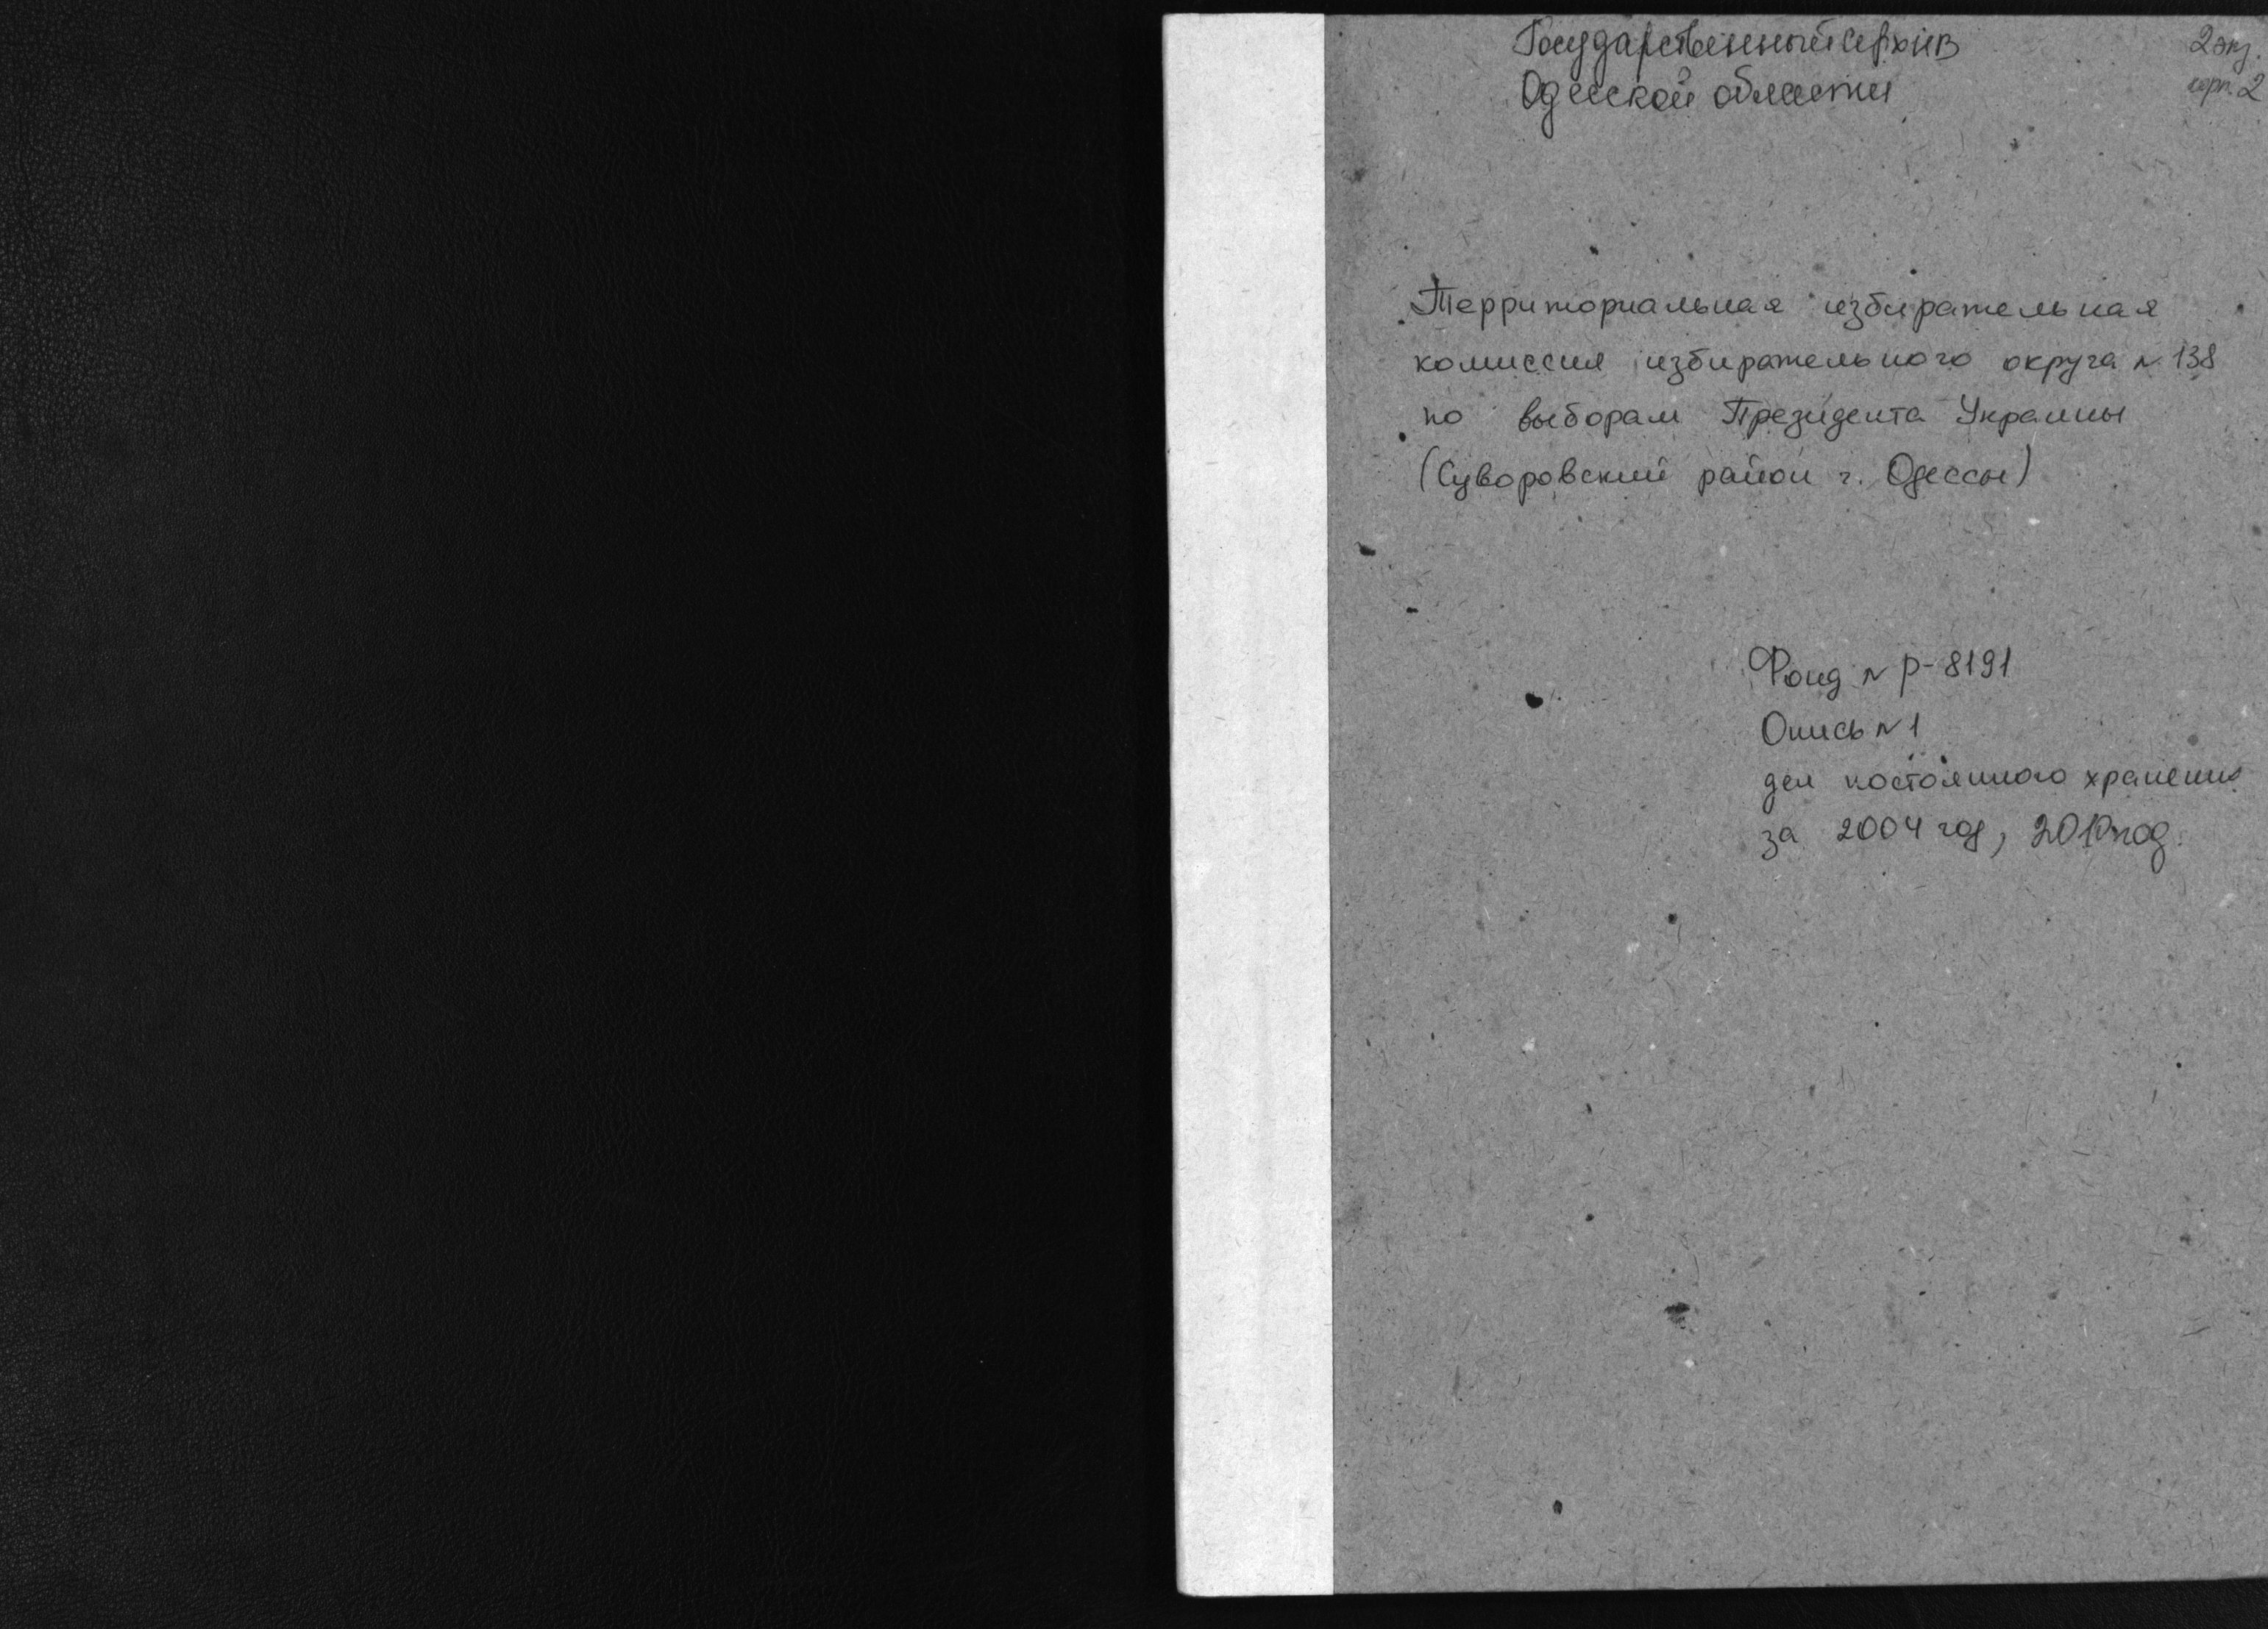 Государственный архив
Одесской области
2 экз.
корп. 2
Территориальная избирательная
комиссия избирательного округа № 138
по выборам Президента Украины
(Суворовский район г. Одессы)
Фонд № Р-8191
Опись № 1
дел постоянного хранения
за 2004 год, 2010 год.